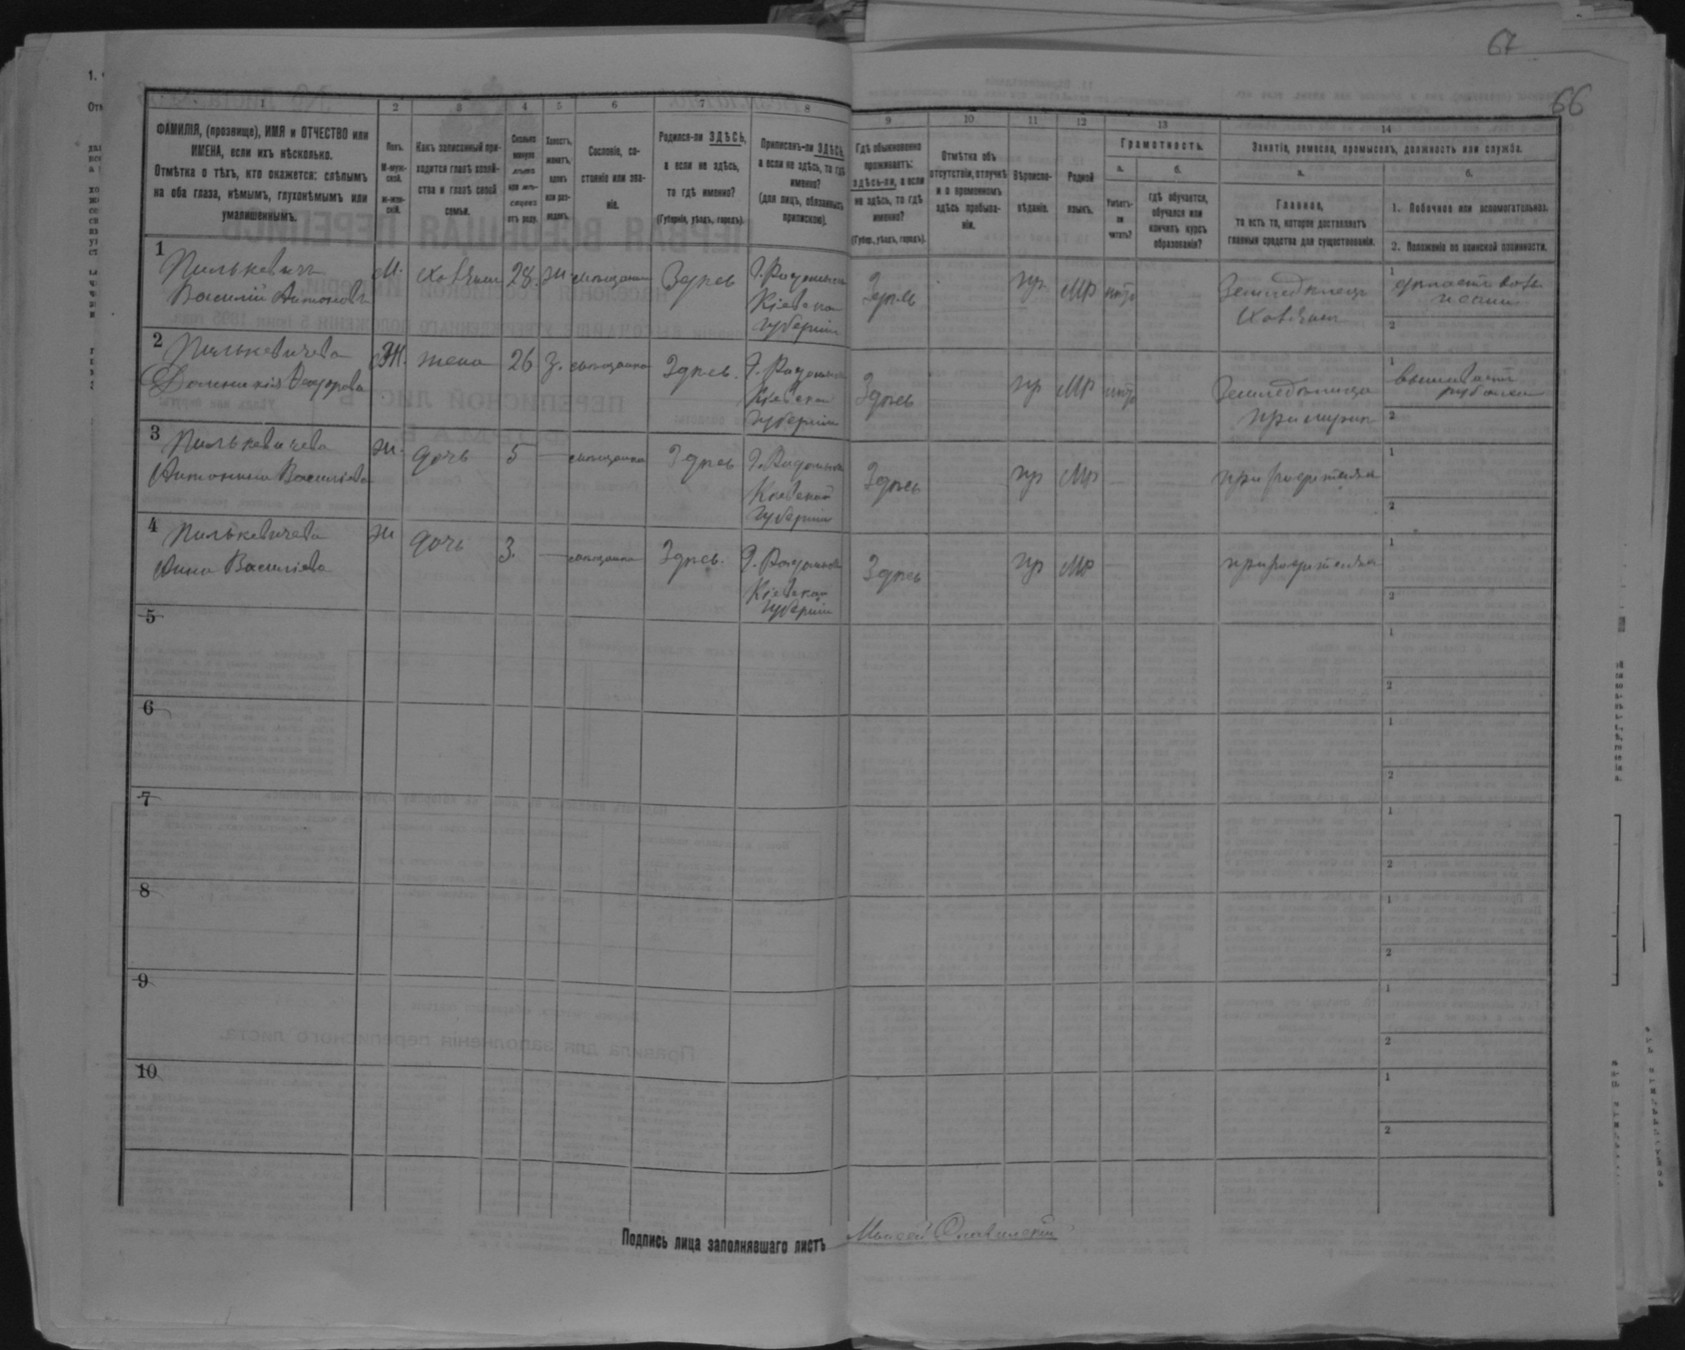 67
66
1 2 3 4 5 6 7 8 9 10 11 12 13 14
ФАМИЛІЯ, (прозвище), ИМЯ и ОТЧЕСТВО или
ИМЕНА, если ихъ нѣсколько.
Отмѣтка о тѣхъ, кто окажется: слѣпымъ
на оба глаза, нѣмымъ, глухонѣмымъ или
умалишеннымъ.
Полъ.
М-муж-
ской.
Ж-жен-
скій.
Какъ записанный при-
ходится главѣ хозяй-
ства и главѣ своей
семьи.
Сколько
минуло
лѣтъ
или мѣ-
сяцевъ
отъ роду.
Холостъ,
женатъ,
вдовъ
или раз-
веденъ.
Сословіе, со-
стояніе или зва-
ніе.
Родился-ли ЗДѢСЬ,
а если не здѣсь,
то гдѣ именно?
(Губернія, уѣздъ, городъ).
Приписанъ-ли ЗДѢСЬ,
а если не здѣсь, то гдѣ
именно?
(для лицъ, обязанныхъ
припискою).
Гдѣ обыкновенно
проживаетъ:
здѣсь-ли, а если
не здѣсь, то гдѣ
именно?
(Губер., уѣздъ, городъ).
Отмѣтка объ
отсутствіи, отлучкѣ
и о временномъ
здѣсь пребыва-
ніи.
Вѣроиспо-
вѣданіе.
Родной
языкъ.
Грамотность.
а. б.
Умѣетъ-
ли
читать?
гдѣ обучается,
обучался или
кончилъ курсъ
образованія?
Занятіе, ремесло, промыселъ, должность или служба.
а. б.
Главное,
то есть то, которое доставляетъ
главныя средства для существованія.
1. Побочное или вспомогательное.
2. Положеніе по воинской повинности.
1
Пилькевичъ
Василій Антоновъ
М. хозяинъ 28. ж. мѣщанинъ Здѣсь
Г. Радомысль
Кіевской
губерніи
Здѣсь пр МР нѣтъ
Земледѣлецъ
хозяинъ
1
2
2
Пилькевичева
Ѳеодорова
Ж. жена 26 з. мѣщанка Здѣсь.
Г. Радомысль
Кіевской
губерніи
Здѣсь пр МР нѣтъ
Земледѣлица
при мужѣ
1
2
3
Пилькевичева
Антонина Васильева
ж. дочь 5 — мѣщанка Здѣсь
Г. Радомысль
Кіевской
губерніи
Здѣсь пр МР при родителяхъ
1
2
4
Пилькевичева
Анна Васильева
ж дочь 3. — мѣщанка Здѣсь.
Г. Радомысль
Кіевской
губерніи
Здѣсь пр МР при родителяхъ
1
2
5
1
2
6
1
2
7
1
2
8
1
2
9
1
2
10
1
2
Подпись лица заполнявшаго листъ Моисей